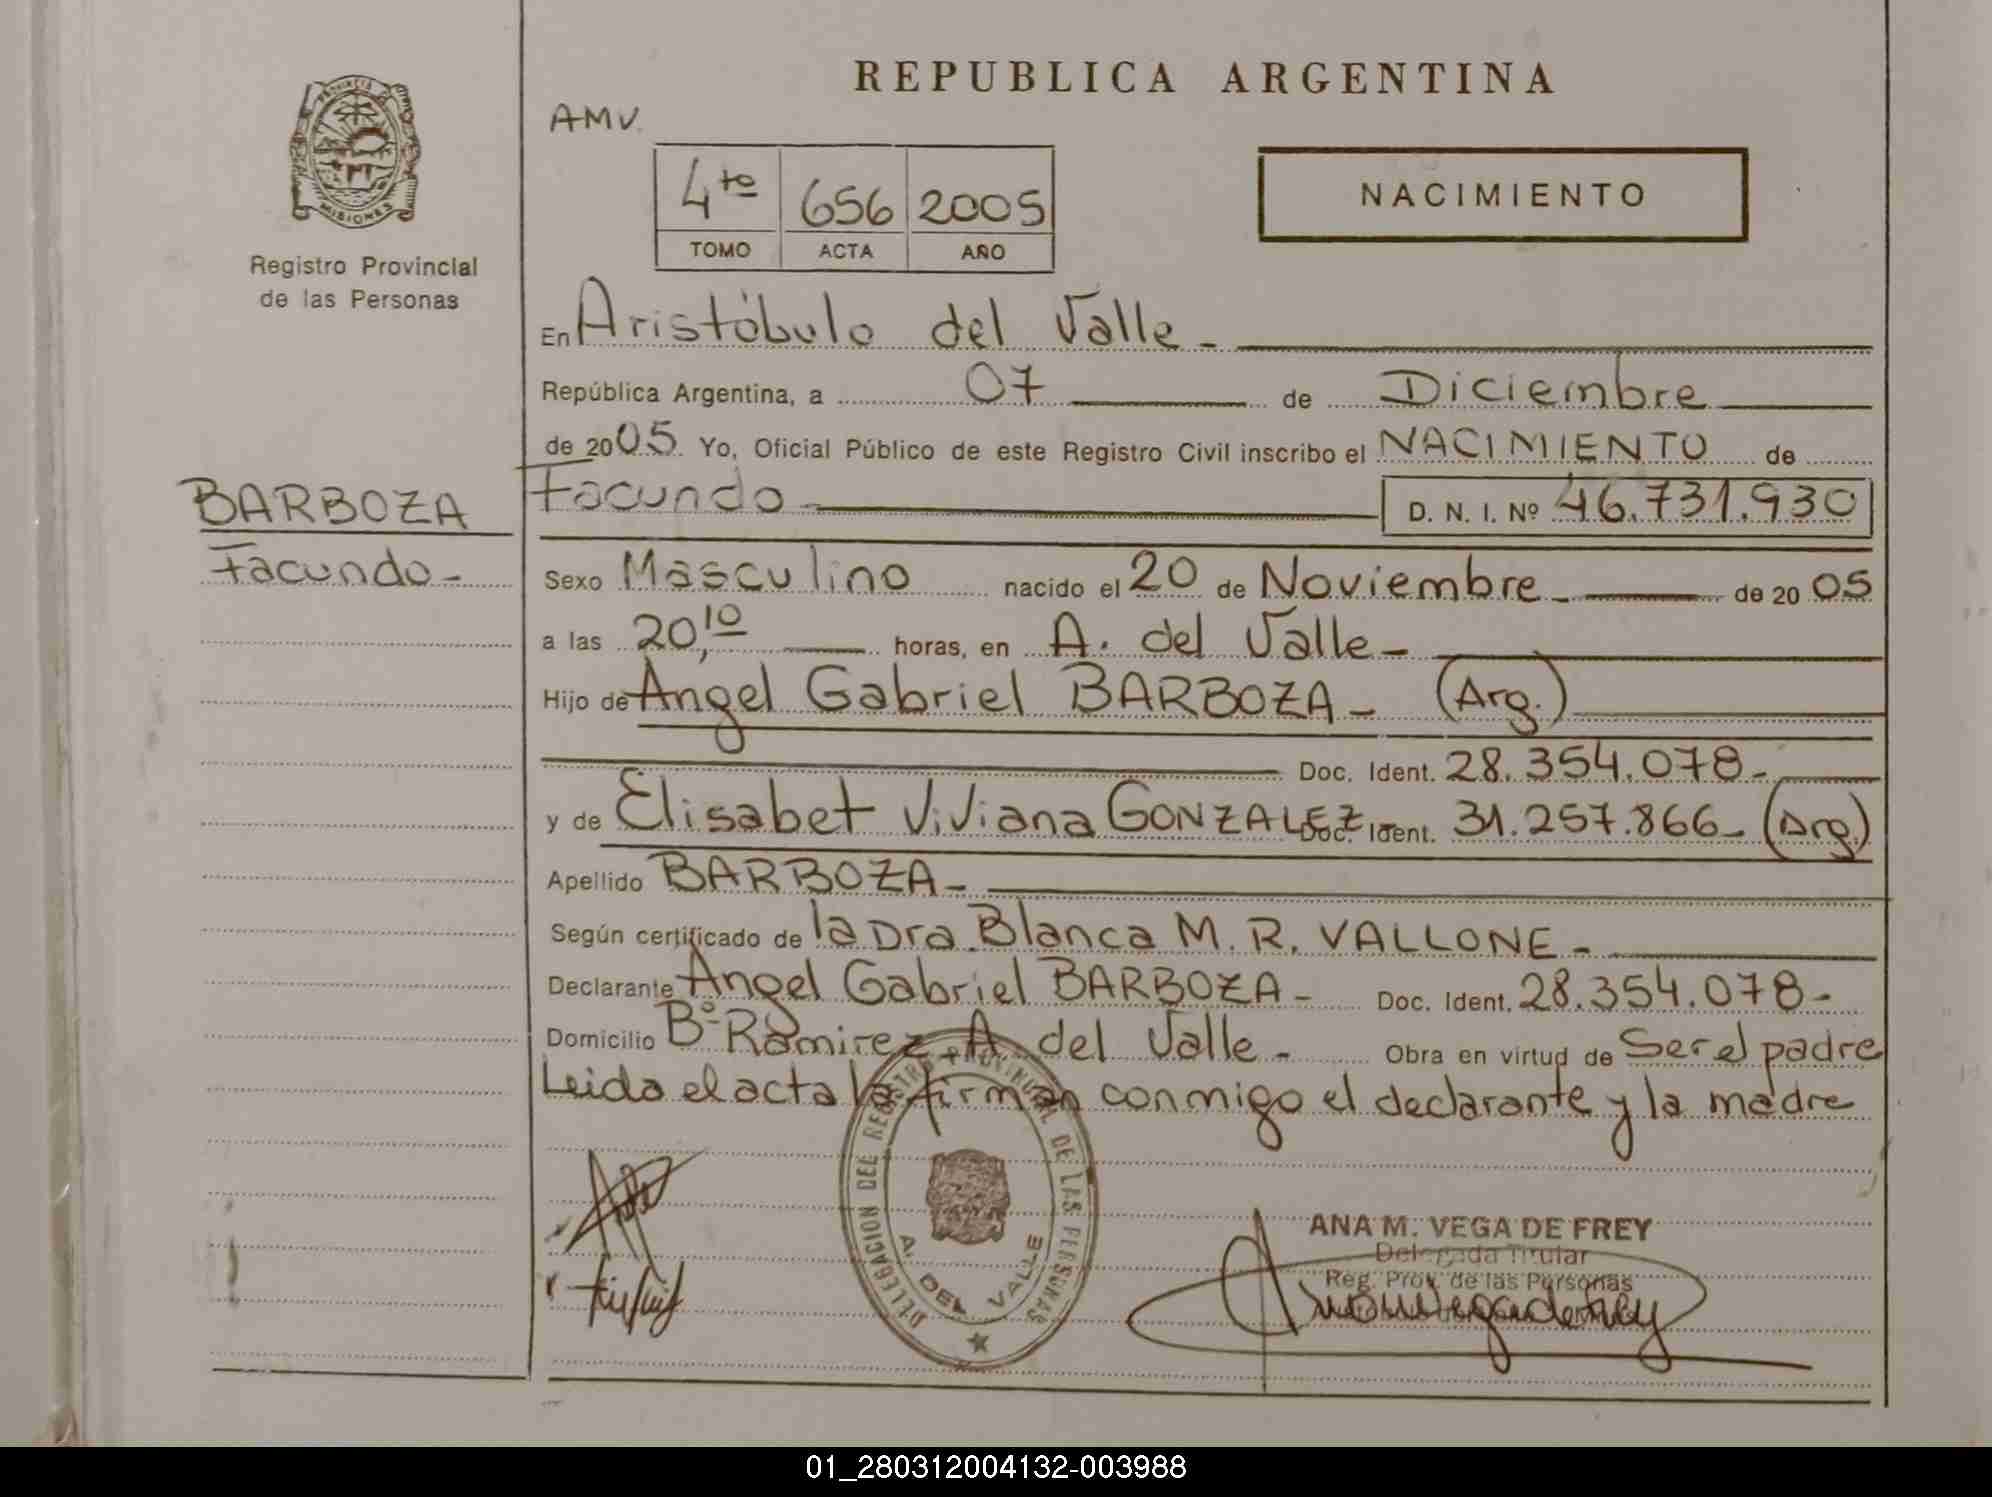 REPUBLICA ARGENTINA
AMV.
PROVINCIA DE MISIONES
Registro Provincial
de las Personas
4to 656 2005
TOMO ACTA AÑO
NACIMIENTO
En Aristóbulo del Valle -
República Argentina, a 07 de Diciembre
de 2005. Yo, Oficial Público de este Registro Civil inscribo el NACIMIENTO de
BARBOZA
Facundo -
Facundo - D. N. I. Nº 46.731.930
Sexo Masculino nacido el 20 de Noviembre - de 20 05
a las 20,10 horas, en A. del Valle -
Hijo de Angel Gabriel BARBOZA - (Arg.)
Doc. Ident. 28.354.078 -
y de Elisabet Viviana GONZALEZ Doc. Ident. 31.257.866 - (Arg.)
Apellido BARBOZA -
Según certificado de la Dra. Blanca M. R. VALLONE -
Declarante Angel Gabriel BARBOZA - Doc. Ident. 28.354.078 -
Domicilio Bº Ramirez A. del Valle - Obra en virtud de Ser el padre
Leida el acta la firman conmigo el declarante y la madre
DELEGACION DEL REGISTRO PROVINCIAL DE LAS PERSONAS
A. DEL VALLE
ANA M. VEGA DE FREY
Delegada Titular
Reg. Prov. de las Personas
01_280312004132-003988